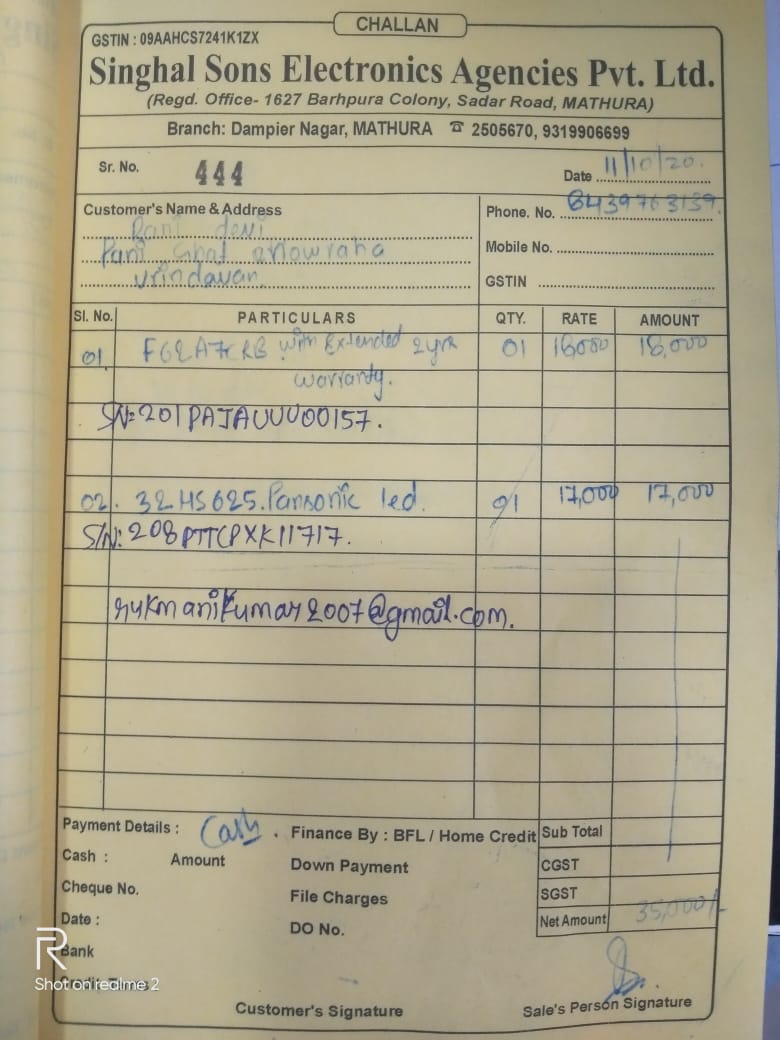 CHALLAN
GSTIN : 09AAHCS7241K1ZX
Singhal Sons Electronics Agencies Pvt. Ltd.
(Regd. Office- 1627 Barhpura Colony, Sadar Road, MATHURA)
Branch: Dampier Nagar, MATHURA ☎ 2505670, 9319906699
Sr. No. 444 Date 11/10/20.
Customer's Name & Address Phone. No. 8439763139
Rani devi
Pani Ghat Mobile No.
vrindavan. GSTIN
Sl. No. PARTICULARS QTY. RATE AMOUNT
01. with Extended 2yrs 01 18000 18,000
warranty.
SN:201PAJAUUU00157.
02. 32HS625.Pansonic led. 01 17,000 17,000
S/N:208PTTCPXK11717.
rukmanikumar2007@gmail.com.
Payment Details : Cash. Finance By : BFL / Home Credit Sub Total
Cash : Amount Down Payment CGST
Cheque No. File Charges SGST
Date : DO No. Net Amount 35,000/-
Bank
Shot on realme 2
Customer's Signature Sale's Person Signature